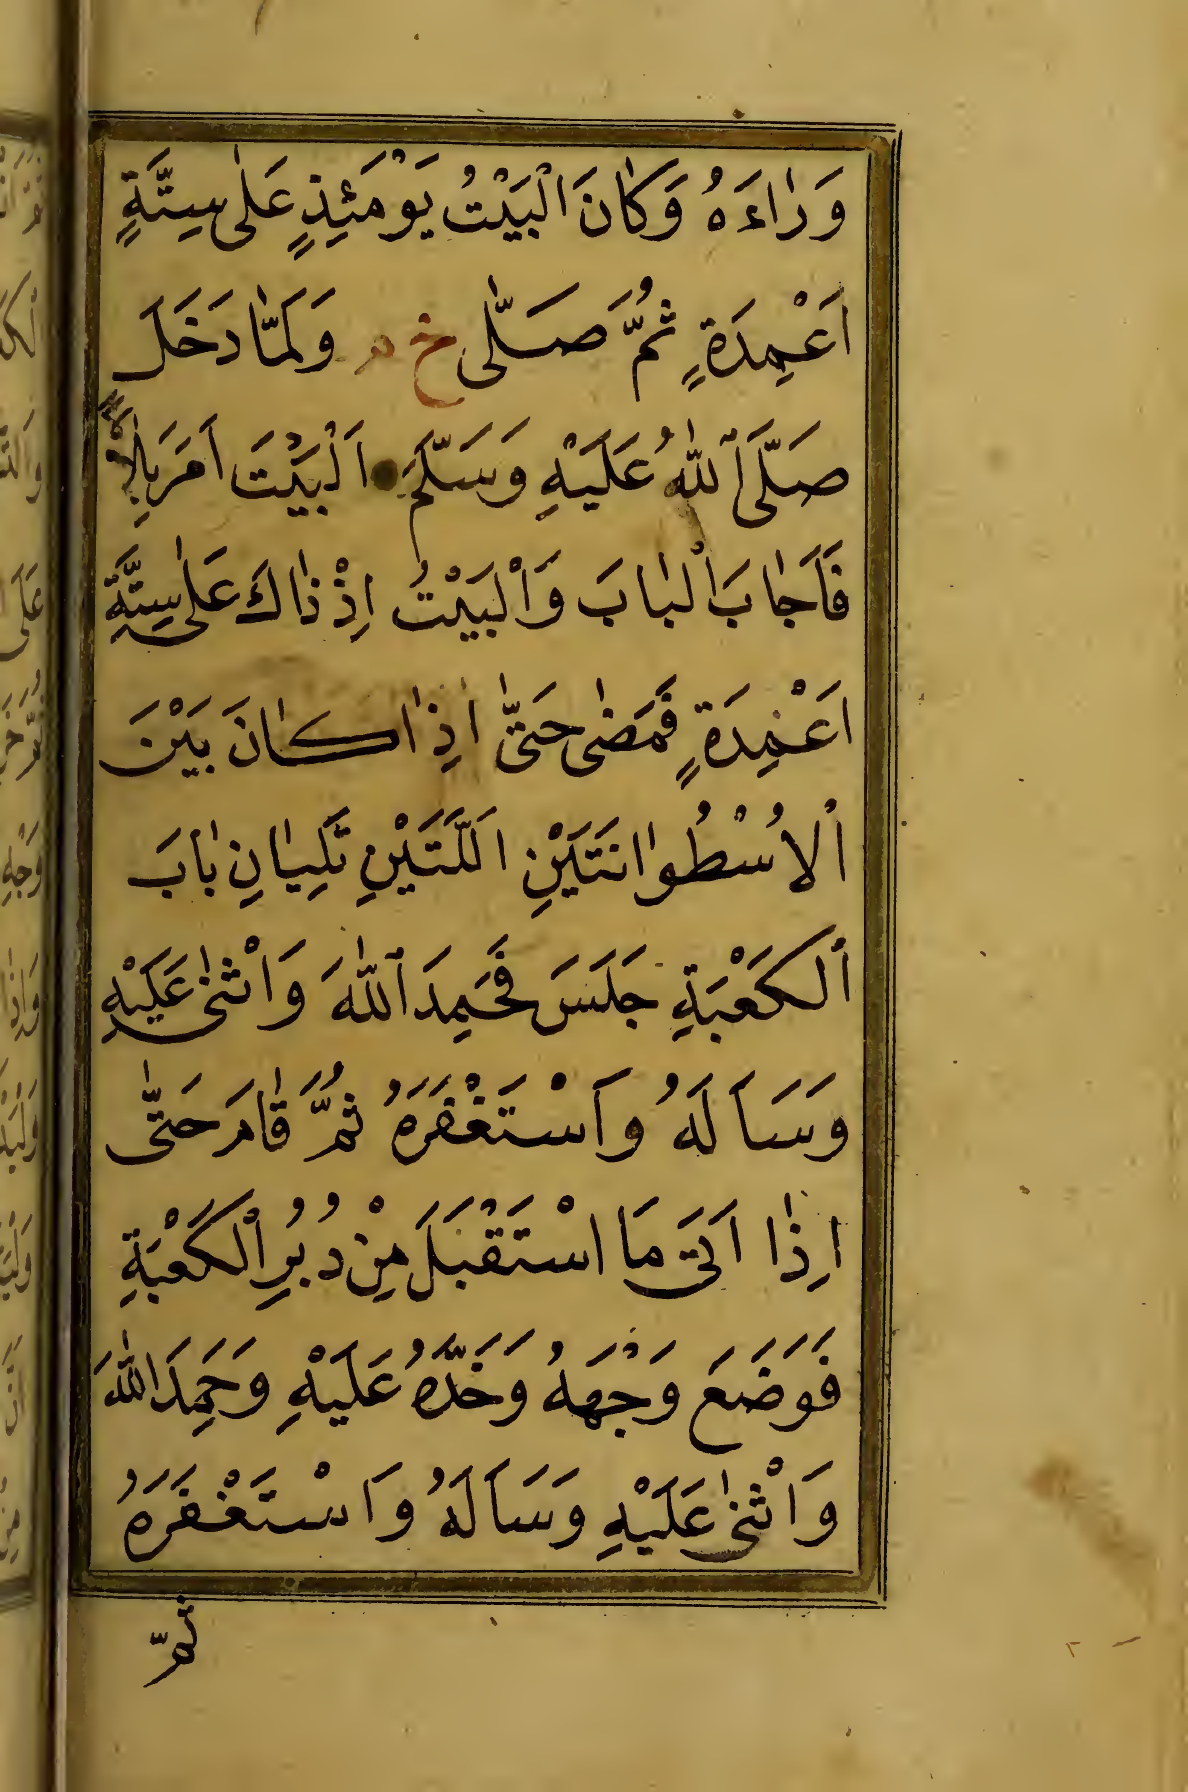 وَرٰاءَهُ وَكٰانَ الْبَيْتُ يَوْمَئِذٍ عَلٰى سِتَّةِ
اَعْمِدَةٍ ثُمَّ صَلّٰى خ م وَلَمّٰا دَخَلَ
صَلَّى اللّٰهُ عَلَيْهِ وَسَلَّمَ اَلْبَيْتَ اَمَرَ بِلاٰلاً
فَاَجٰابَ الْبٰابَ وَالْبَيْتُ اِذْ ذٰاكَ عَلٰى سِتَّةِ
اَعْمِدَةٍ فَمَضٰى حَتّٰى اِذٰا كٰانَ بَيْنَ
الْاُسْطُوٰانَتَيْنِ اللَّتَيْنِ تَلِيٰانِ بٰابَ
الْكَعْبَةِ جَلَسَ فَحَمِدَ اللّٰهَ وَاَثْنٰى عَلَيْهِ
وَسَاَلَهُ وَاَسْتَغْفَرَهُ ثُمَّ قٰامَ حَتّٰى
اِذٰا اَتٰى مَا اسْتَقْبَلَ مِنْ دُبُرِ الْكَعْبَةِ
فَوَضَعَ وَجْهَهُ وَخَدَّهُ عَلَيْهِ وَحَمِدَ اللّٰهَ
وَاَثْنٰى عَلَيْهِ وَسَاَلَهُ وَاَسْتَغْفَرَهُ
ثُمَّ